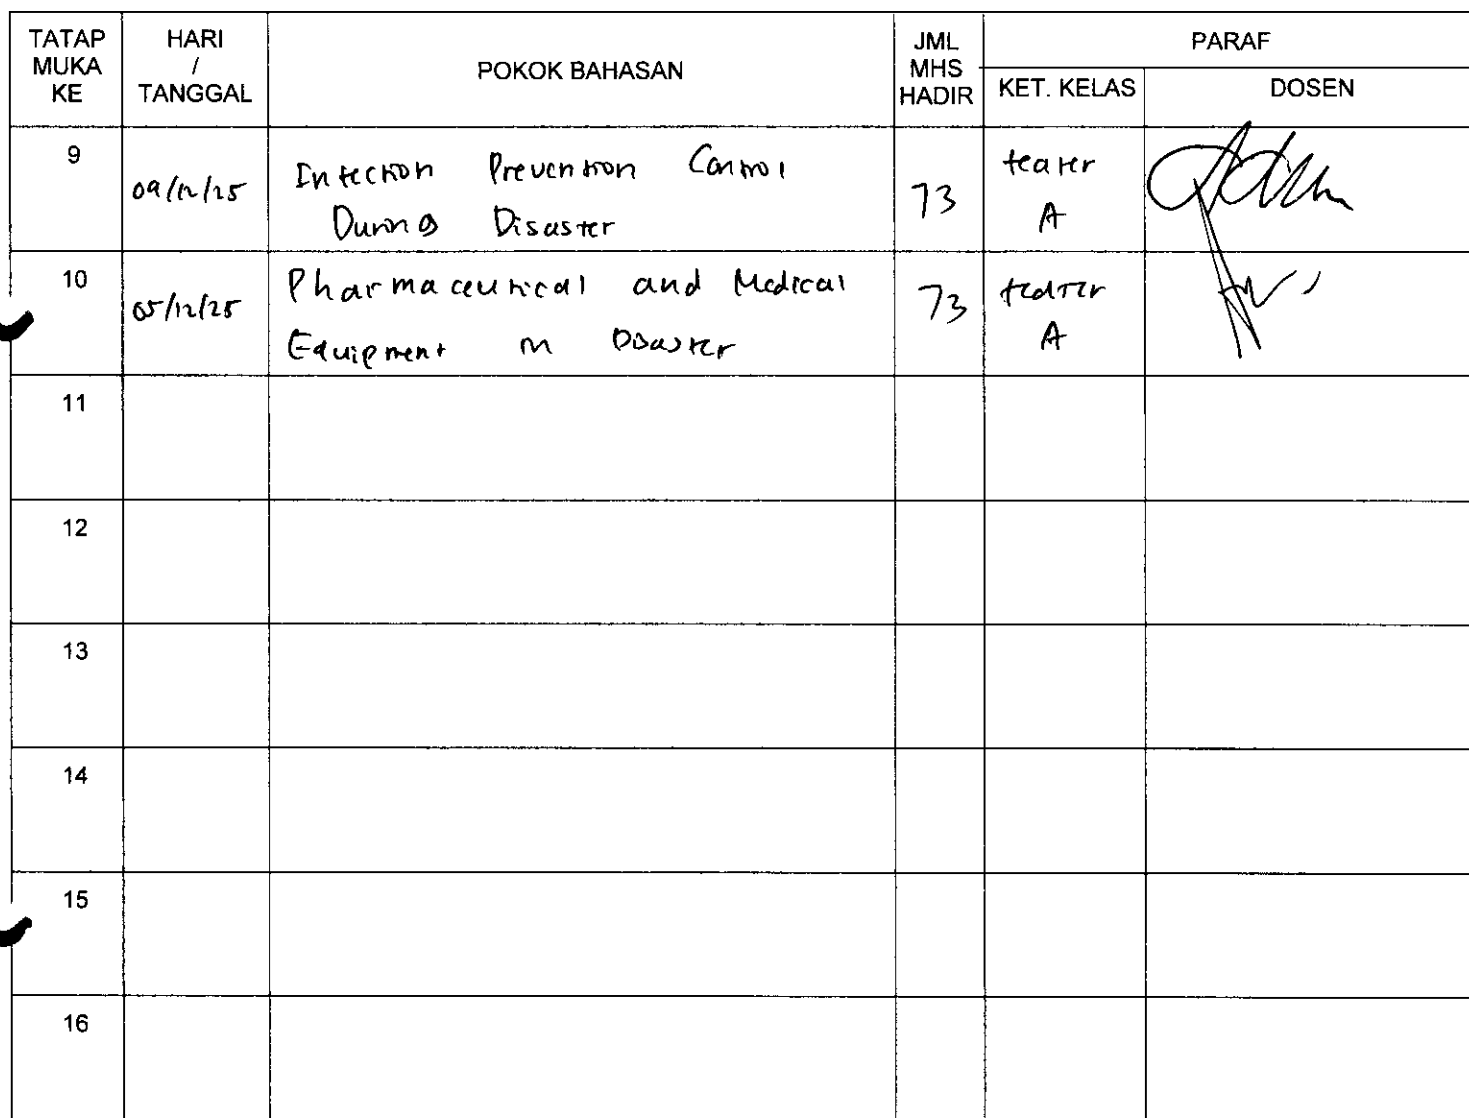 TATAP MUKA KE
HARI / TANGGAL
POKOK BAHASAN
JML MHS HADIR
PARAF
KET. KELAS
DOSEN
9
09/12/25
Infection Prevention Control
During Disaster
73
teater
A
10
05/12/25
Pharmaceutical and Medical
Equipment in Disaster
73
teater
A
11
12
13
14
15
16